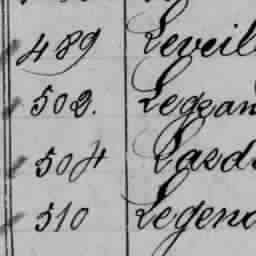 489 Leveil
502. Legran
504 Lard
510 Legend